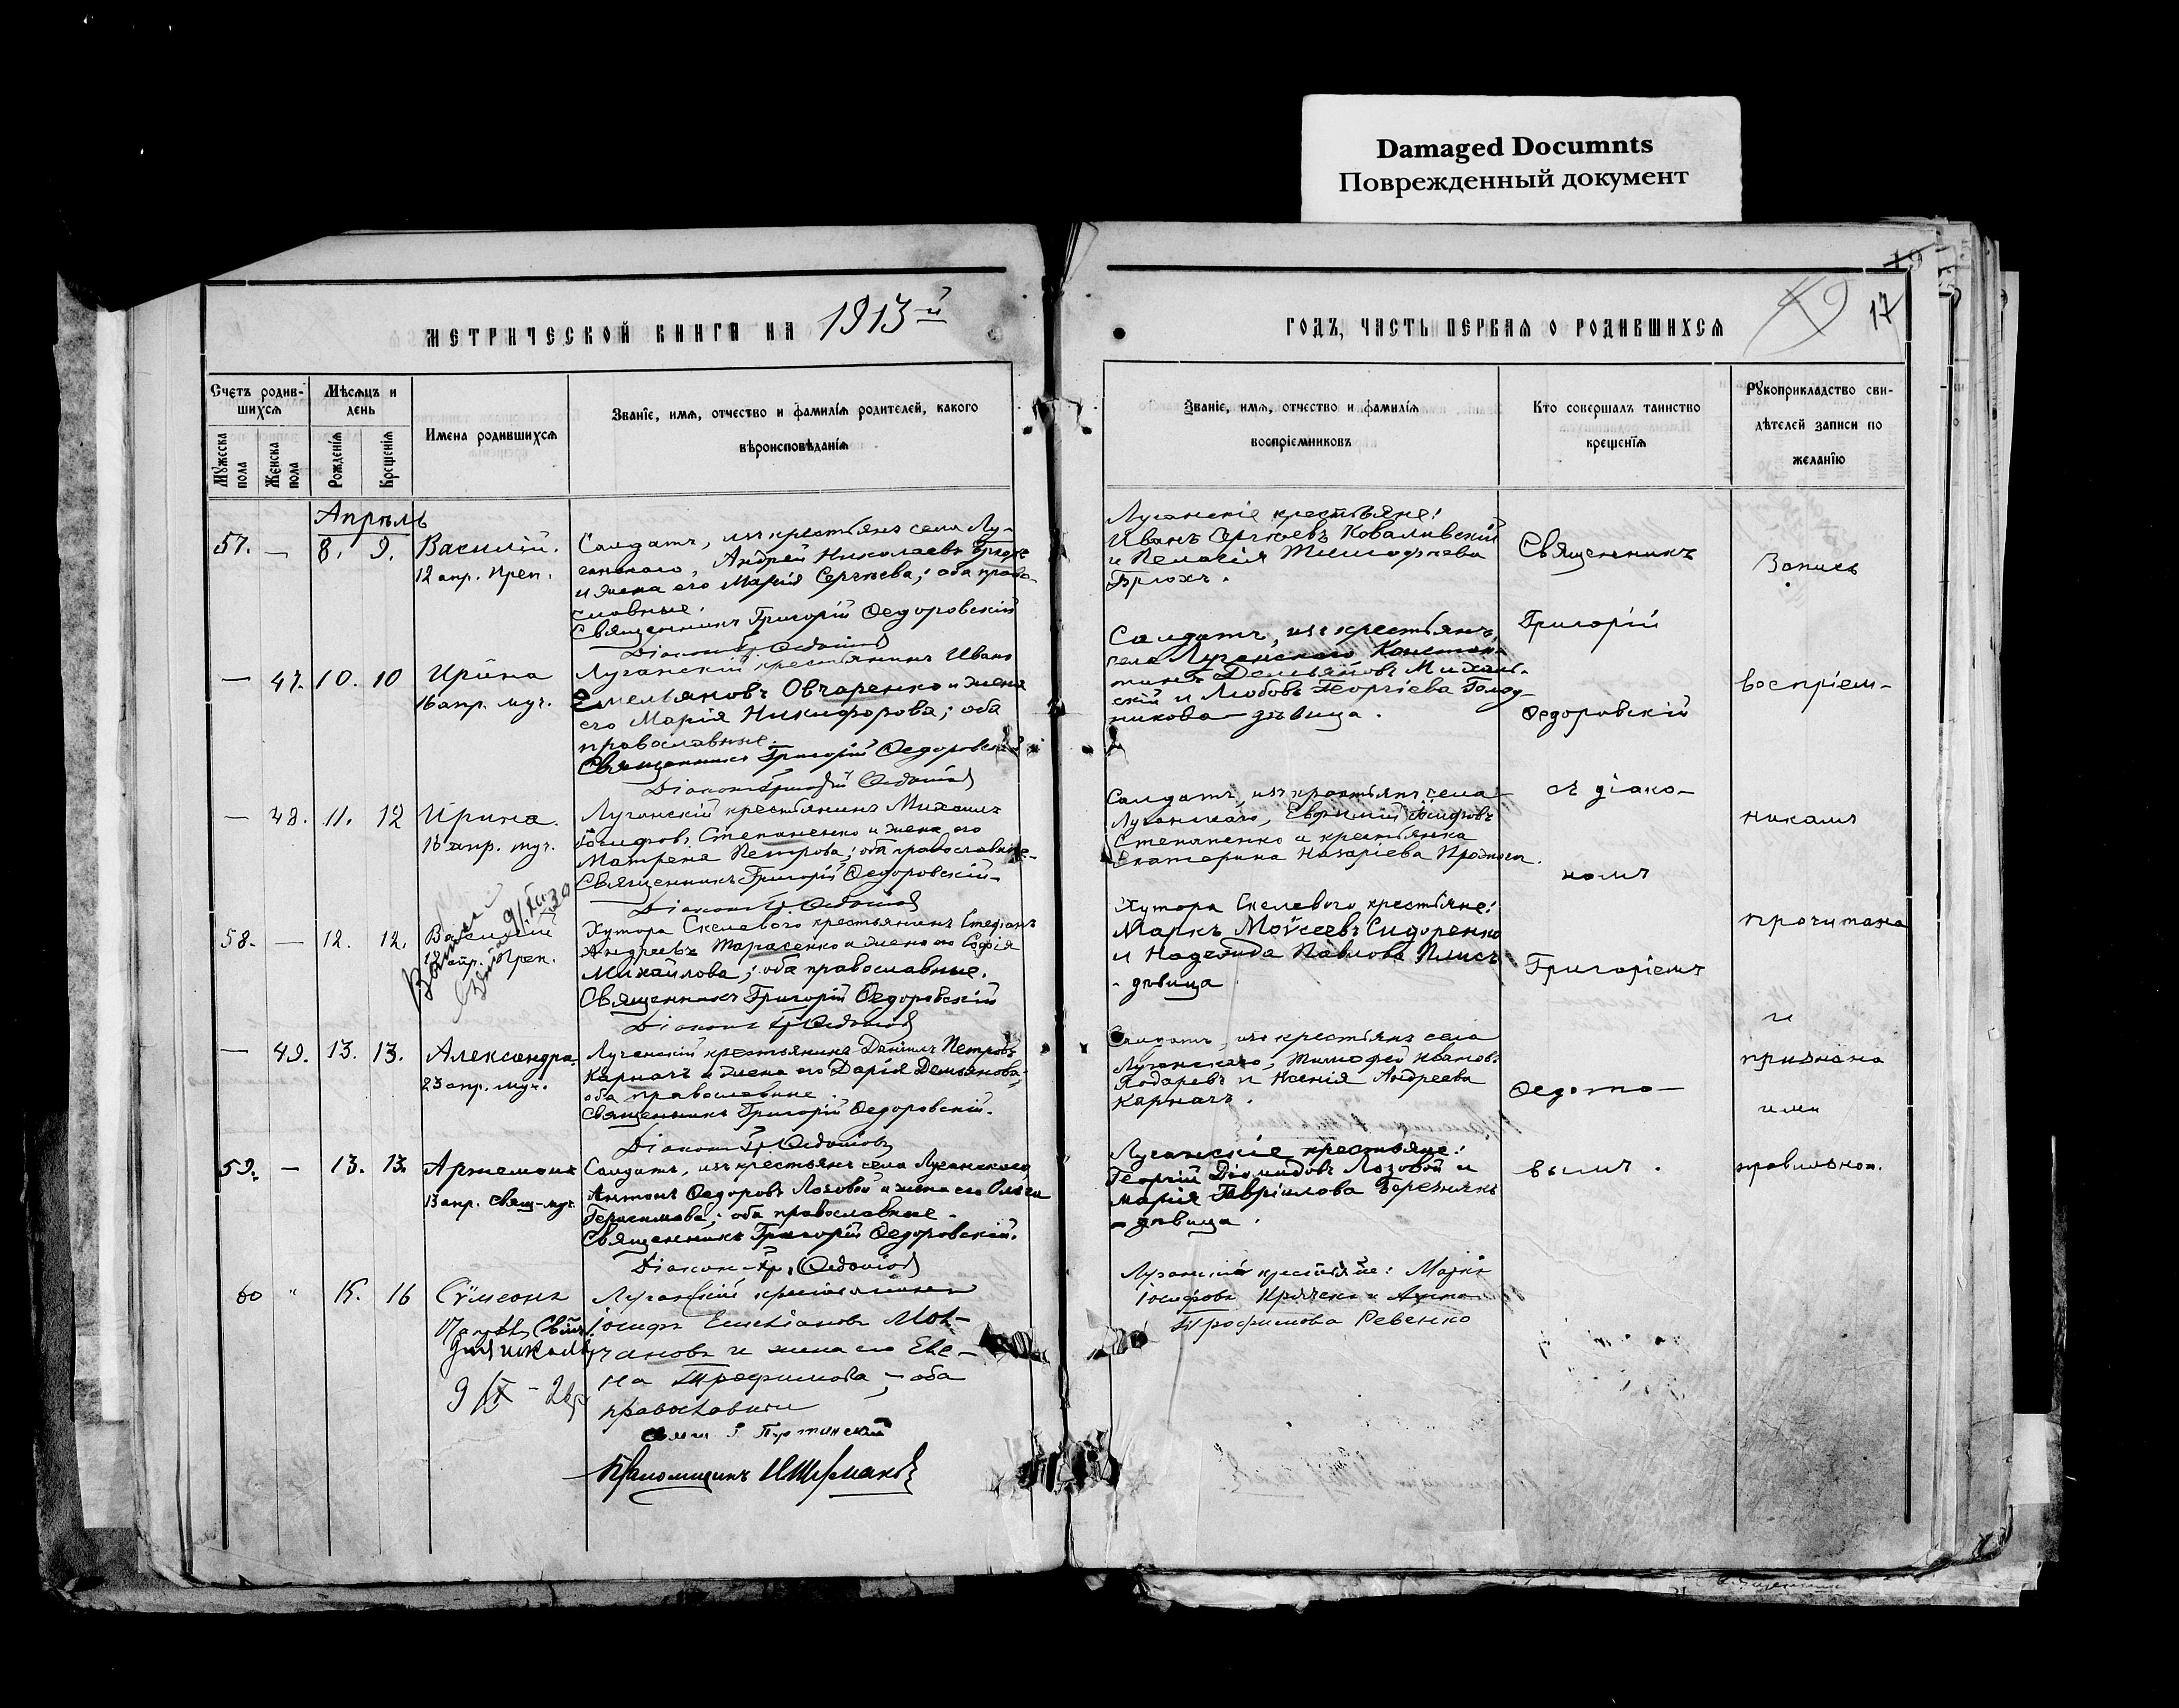 Damaged Documnts
Поврежденный документ
19
17
МЕТРИЧЕСКОЙ КНИГИ НА 1913й
ГОДЪ, ЧАСТЬ ПЕРВАЯ О РОДИВШИХСЯ
Счетъ родив-
шихся
Мужеска пола
Женска пола
Мѣсяцъ и
день
Рожденія
Крещенія
Имена родившихся
Званіе, имя, отчество и фамилія родителей, какого
вѣроисповѣданія
Званіе, имя, отчество и фамилія
воспріемниковъ
Кто совершалъ таинство
крещенія
Рукоприкладство сви-
дѣтелей записи по
желанію
Апрѣль
57. — 8. 9. Василій.
12 апр. преп.
Солдатъ, изъ крестьянъ села Лу-
ганскаго, Андрей Николаевъ
и жена его Марія Сергѣева; оба право-
славные.
Священникъ Григорій Ѳедоровскій
Діаконъ Гр. Ѳедотовъ
Луганскіе крестьяне:
Иванъ Сергѣевъ Коваливскій
и Пелагія Тимофѣева
Брюхъ.
— 47. 10. 10 Ирина
16 апр. муч.
Луганскій крестьянинъ Иванъ
Емельяновъ Овчаренко и жена
его Марія Никифорова; оба
православные.
Священникъ Григорій Ѳедоровскій
Діаконъ Григорій Ѳедотовъ
Солдатъ, изъ крестьянъ
села Луганскаго Констан-
тинъ Демьяновъ Михаль-
скій и Любовь Георгіева
никова — дѣвица.
— 48. 11. 12 Ирина.
16 апр. муч.
Луганскій крестьянинъ Михаилъ
Іосифовъ Степаненко и жена его
Матрена Петрова; оба православные.
Священникъ Григорій Ѳедоровскій
Діаконъ Гр. Ѳедотовъ
Солдатъ, изъ крестьянъ села
Луганскаго, Евфимій Іосифовъ
Степаненко и крестьянка
Екатерина Назаріева
58. — 12. 12. Василій
12 апр. Преп.
Хутора Скелевого крестьянинъ Стефанъ
Андреевъ Тарасенко и жена его Софія
Михайлова; оба православные.
Священникъ Григорій Ѳедоровскій
Діаконъ Гр. Ѳедотовъ
Хутора Скелевого крестьяне:
Маркъ Моѵсеевъ Сидоренко
и Надежда Павлова Плисъ
- дѣвица
— 49. 13. 13. Александра
23 апр. муч.
Луганскій крестьянинъ Даніилъ Петровъ
Карначъ и жена его Дарія Демьянова;
оба православные.
Священникъ Григорій Ѳедоровскій.
Діаконъ Гр. Ѳедотовъ
Солдатъ, изъ крестьянъ села
Луганскаго, Тимофей Ивановъ
и Ксенія Андреева
Карначъ.
59. — 13. 13. Артемонъ
13 апр. свящ-муч.
Солдатъ, изъ крестьянъ села Луганскаго,
Антонъ Ѳедоровъ Лозовой и жена его Ольга
Герасимова; оба православные.
Священникъ Григорій Ѳедоровскій.
Діаконъ Гр. Ѳедотовъ
Луганскіе крестьяне:
Георгій Діомидовъ Лозовой и
Марія Гавріилова Бережнякъ
- дѣвица.
60 " 15. 16 Сѵмеонъ
для школы
Луганскій крестьянинъ
Іосифъ Емеліановъ Мол-
чановъ и жена его Еле-
на Трофимова; оба
православные
Луганскіе крестьяне: Марко
Іосифовъ и Анна
Трофимова Ревенко
Священникъ
Григорій
Ѳедоровскій
съ діако-
номъ
Григоріемъ
Ѳедото-
вымъ.
Запись
воспріем-
никамъ
прочитана
и
признана
ими
правильной.